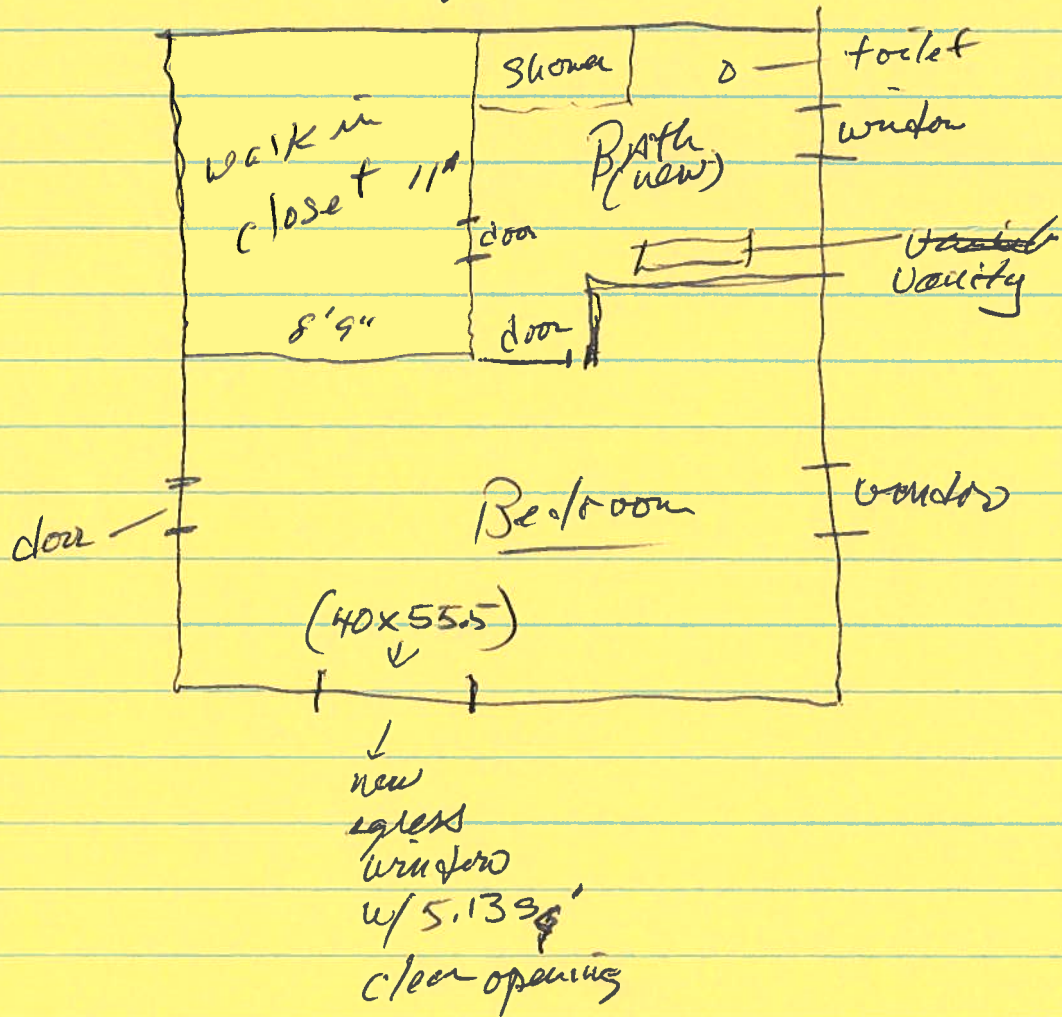 Shower
toilet
window
walk in
closet 11"
Bath
(new)
door
vanity
8'9"
door
Bedroom
window
door
(40x55.5)
new
egress
window
w/ 5.13 sq'
clear opening